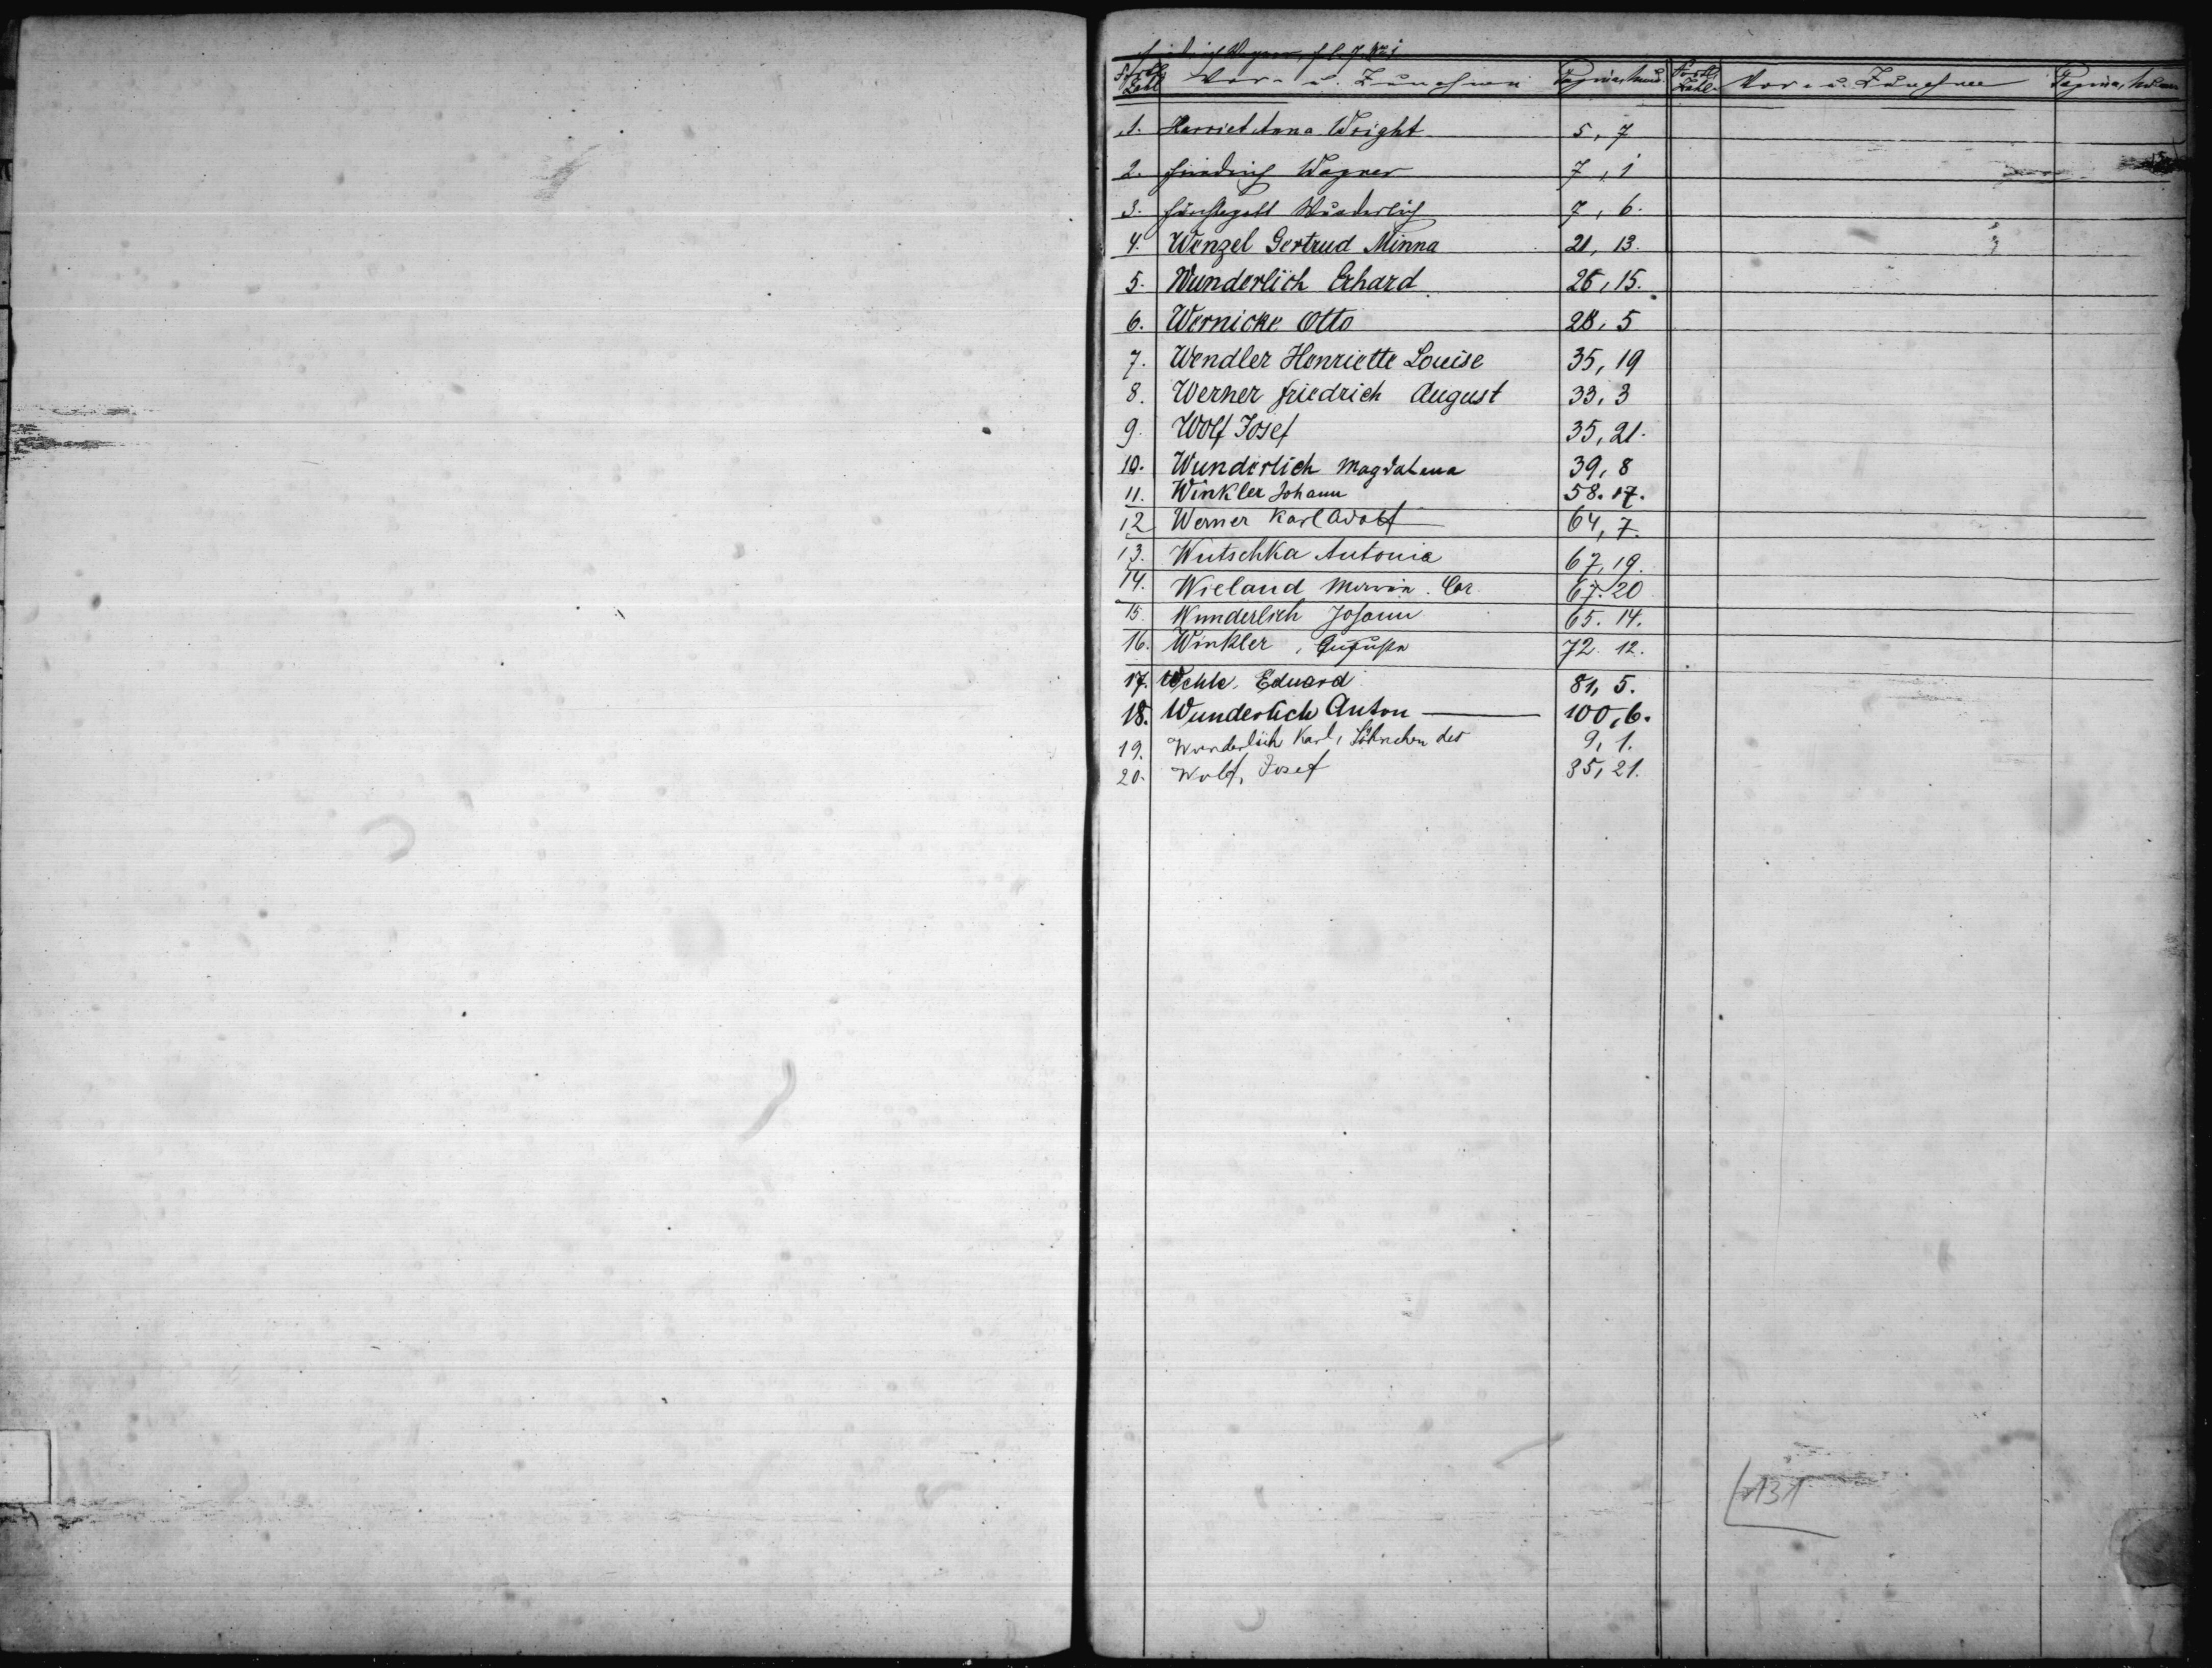 Friedrich Wagner,
Fortl. Zahl Vor- u. Zunahme Pagina, Num. Fortl. Zahl. Vor- u. Zunahme Pagina, Num
1. Harriet Anna Wright 5, 7
2. Friedrich Wagner 7, 1
3. Fürchtegott Wunderlich 7, 6.
4. Wenzel Gertrud Minna 21, 13.
5. Wunderlich Erhard 26, 15.
6. Wernicke Otto 28, 5
7. Wendler Henriette Louise 35, 19
8. Werner Friedrich August 33, 3
9. Wolf Josef 35, 21.
10. Wunderlich Magdalena 39, 8
11. Winkler Johann 58. 17.
12 Werner Karl Adolf 64, 7.
13. Wutschka Antonia 67, 19.
14. Wieland 67. 20
15. Wunderlich Johann 65. 14.
16. Winkler, Augusta 72. 12.
17. Wehle, Eduard 81, 5.
18. Wunderlich Anton 100, 6.
19. Wunderlich Karl, Söhnchen des 9, 1.
20. Wolf, Josef 35, 21.
131